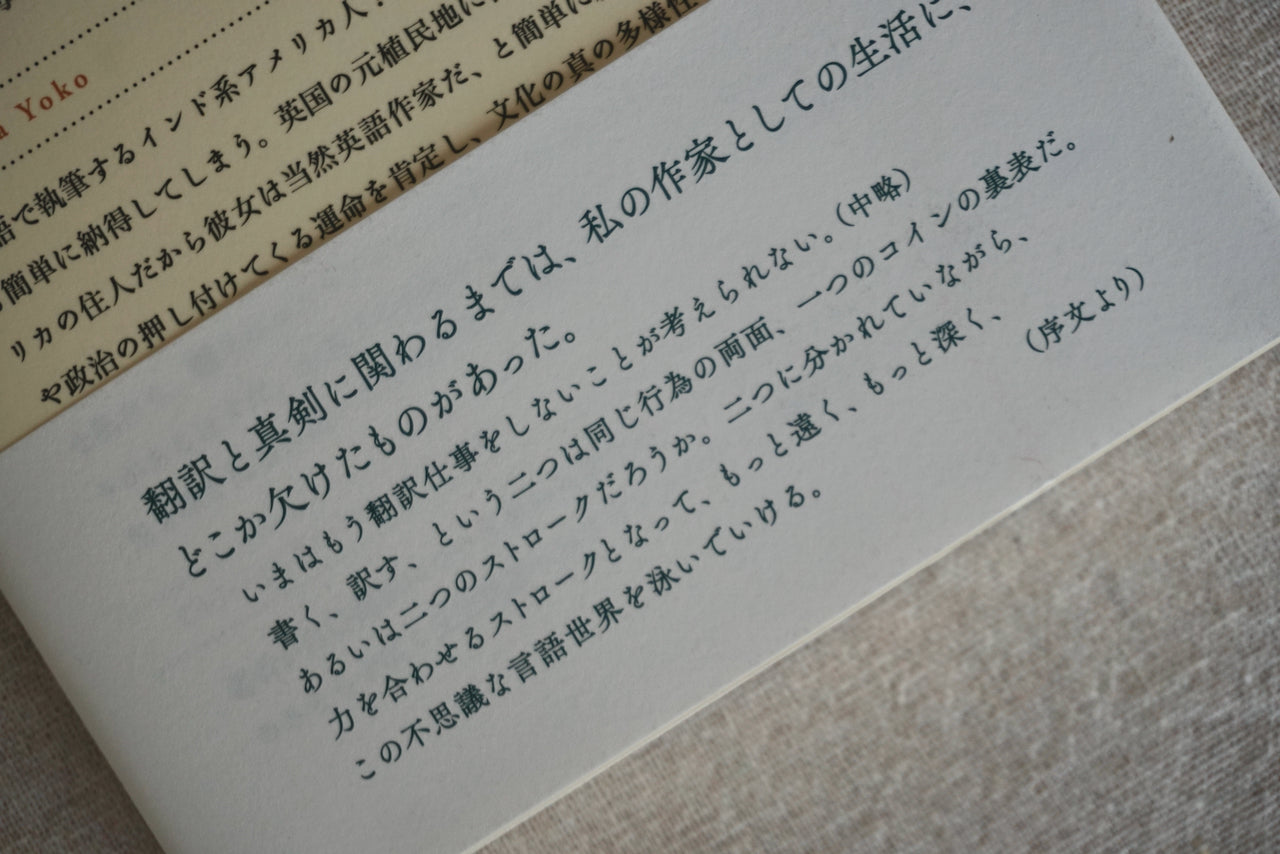 a Yoko
語で執筆するインド系アメリカ人
簡単に納得してしまう。英国の元植民地に
リカの住人だから彼女は当然英語作家だ、と簡単に
や政治の押し付けてくる運命を肯定し、文化の真の多様性
翻訳と真剣に関わるまでは、私の作家としての生活に、
どこか欠けたものがあった。
いまはもう翻訳仕事をしないことが考えられない。（中略）
書く、訳す、という二つは同じ行為の両面、一つのコインの裏表だ。
あるいは二つのストロークだろうか。二つに分かれていながら、
力を合わせるストロークとなって、もっと遠く、もっと深く、
この不思議な言語世界を泳いでいける。
（序文より）